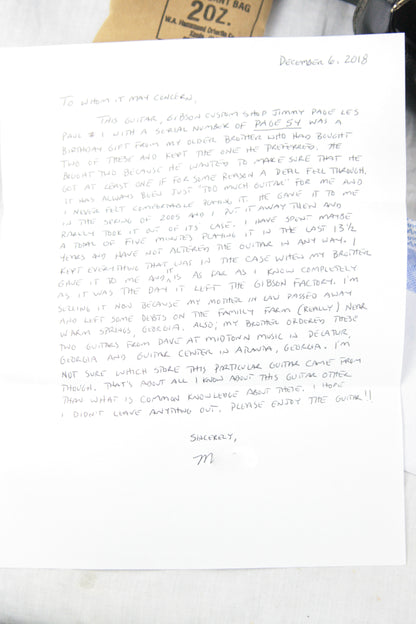 NT BAG
2OZ.
W.A. Hammond Drierite Co.
December 6, 2018
To whom it may concern,
This guitar, Gibson Custom Shop Jimmy Page Les
Paul #1 with a serial number of PAGE 54 was a
birthday gift from my older brother who had bought
two of these and kept the one he preferred. He
bought two because he wanted to make sure that he
got at least one if for some reason a deal fell through.
It has always been just "too much guitar" for me and
I never felt comfortable playing it. He gave it to me
in the spring of 2005 and I put it away then and
rarely took it out of its case. I have spent maybe
a total of five minutes playing it in the last 13 1/2
years and have not altered the guitar in any way. I
kept everything that was in the case when my brother
gave it to me and, is as far as I know completely
as it was the day it left the Gibson factory. I'm
selling it now because my mother in law passed away
and left some debts on the family farm (really) near
Warm Springs, Georgia. Also, my brother ordered these
two guitars from Dave at Midtown Music in Decatur,
Georgia and Guitar Center in Atlanta, Georgia. I'm
not sure which store this particular guitar came from
though. That's about all I know about this guitar other
than what is common knowledge about these. I hope
I didn't leave anything out. Please enjoy the guitar!!
Sincerely,
M